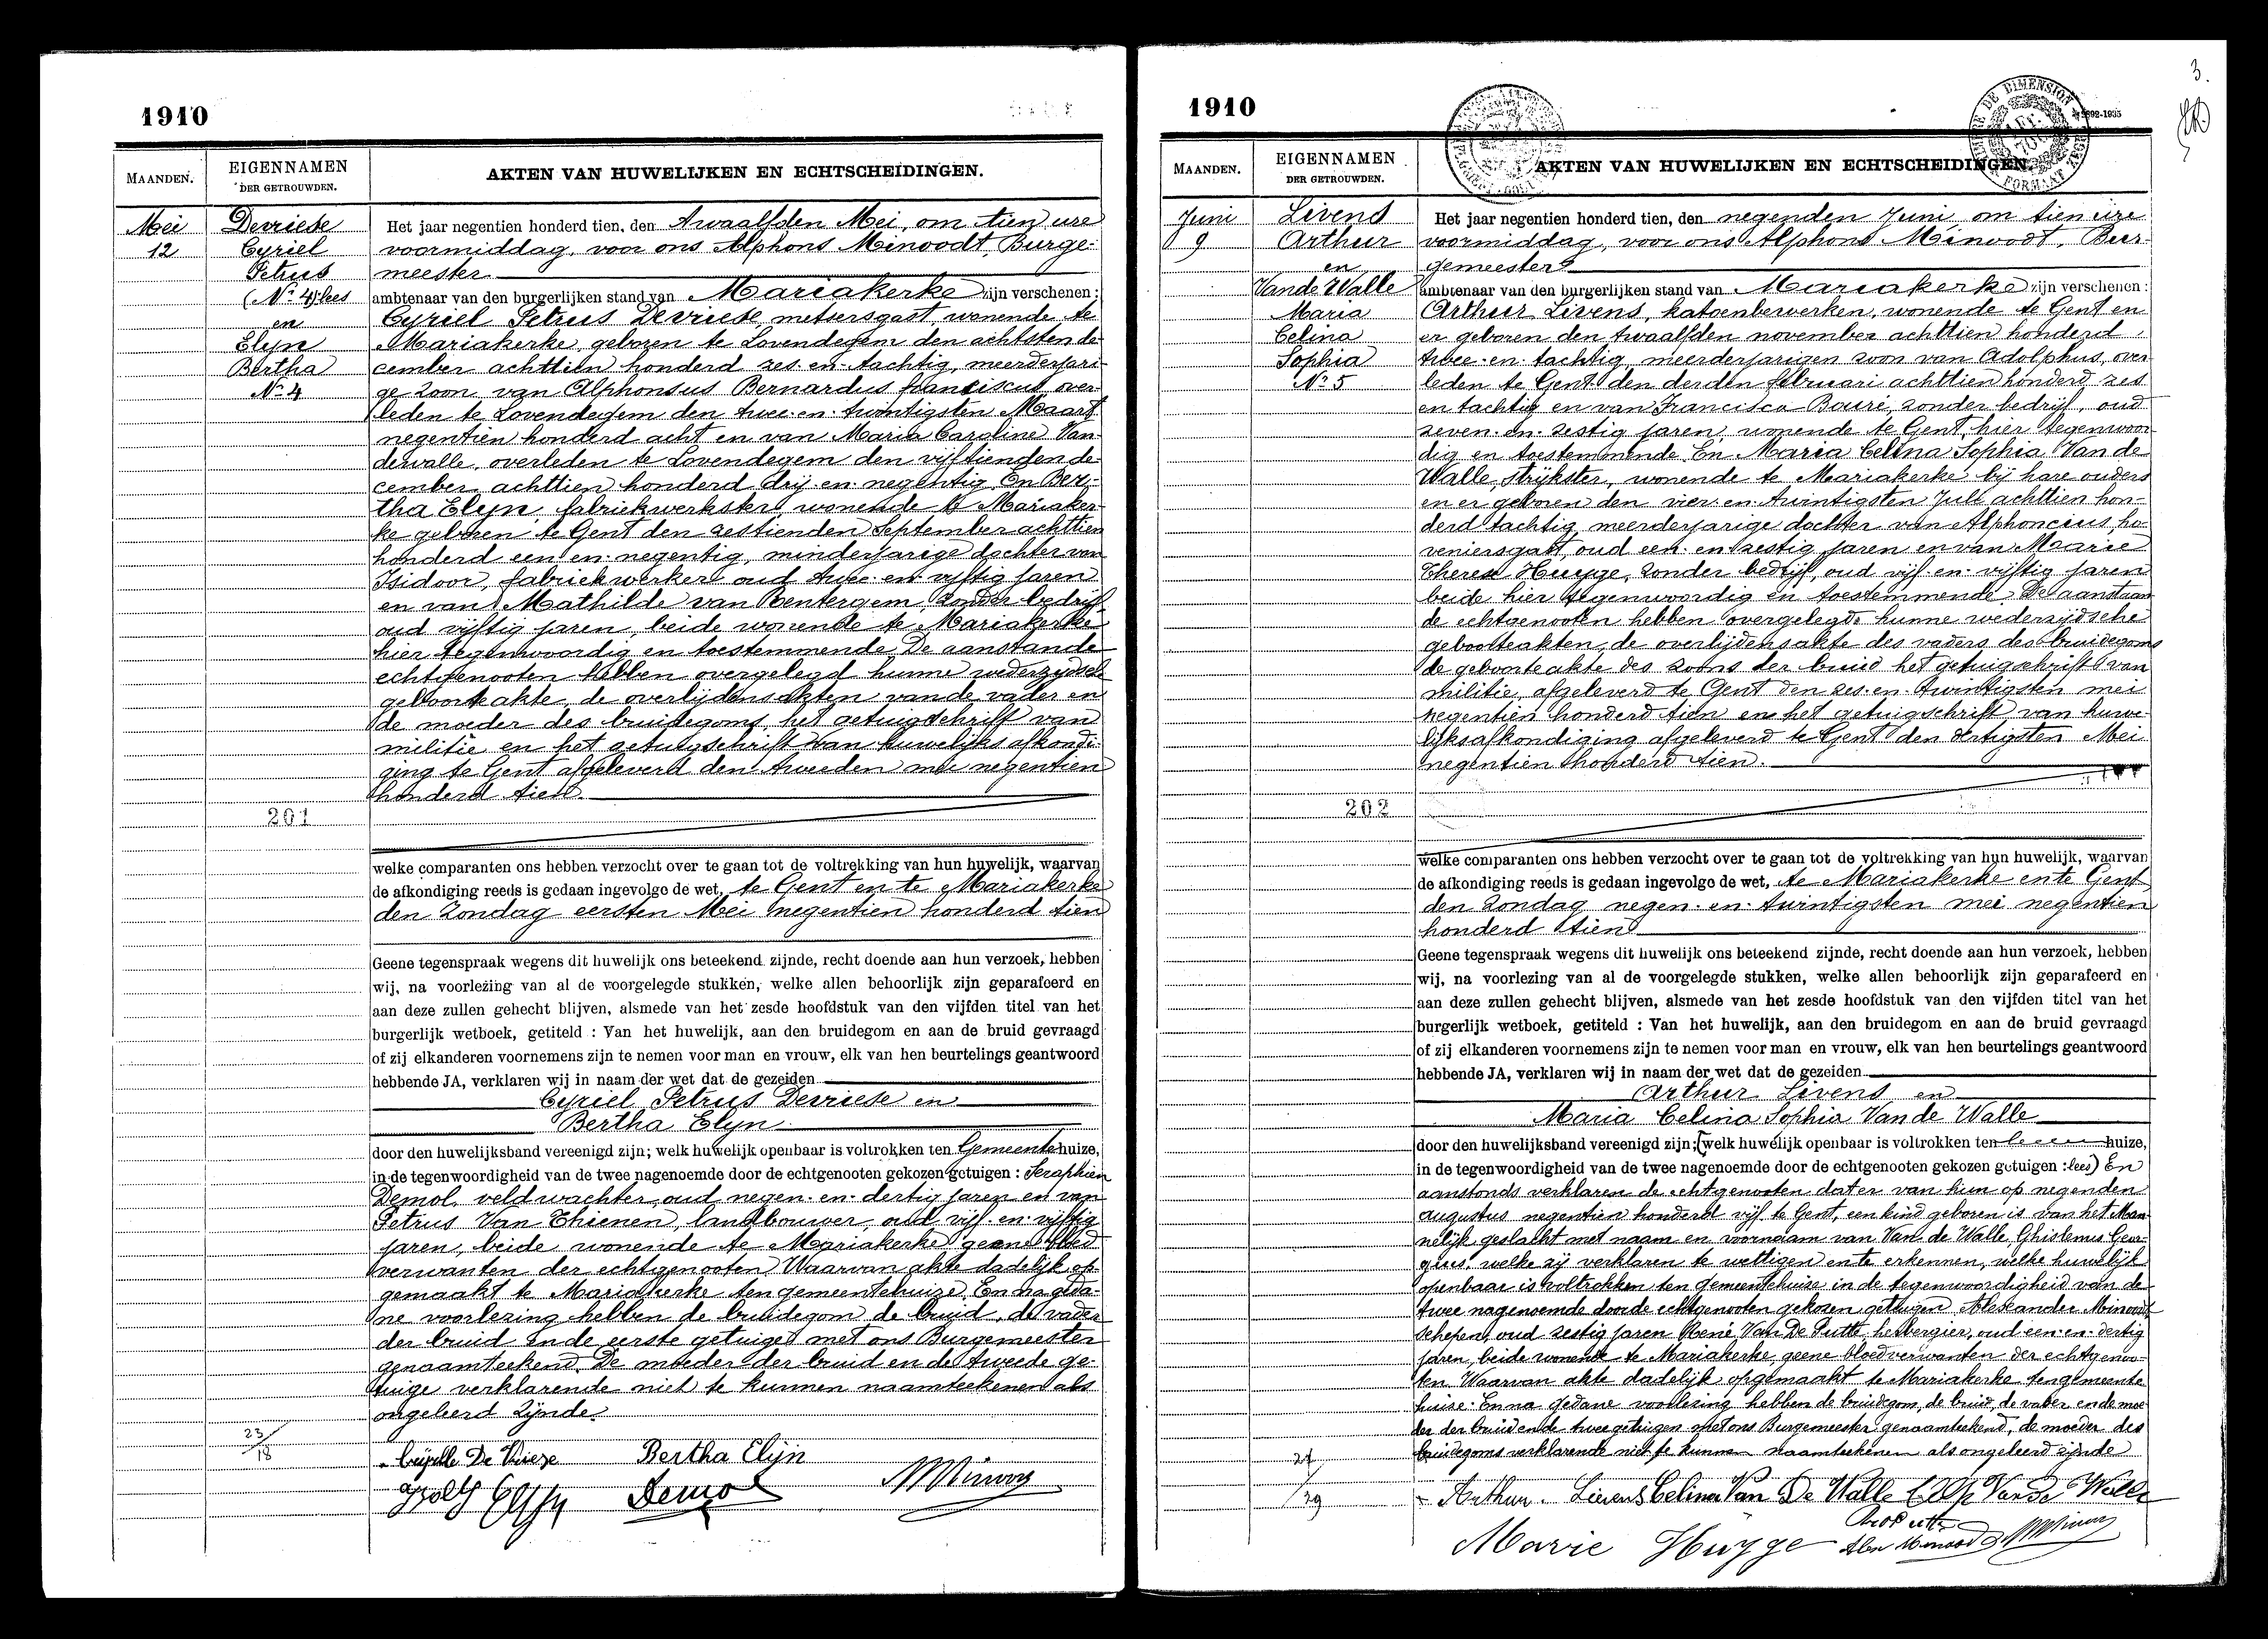 1910
MAANDEN.
EIGENNAMEN
DER GETROUWDEN.
AKTEN VAN HUWELIJKEN EN ECHTSCHEIDINGEN.
Mei
12
Devriese
Cyriel
Petrus
(No 4) lees
en
Elyn
Bertha
No 4
201
23/18
Het jaar negentien honderd tien, den twaalfden Mei, om tien ure
voormiddag, voor ons Alphons Minoodt, Burge-
meester
ambtenaar van den burgerlijken stand van Mariakerke zijn verschenen:
Cyriel Petrus Devriese, metsersgast, wonende te
Mariakerke, geboren te Lovendegem den achtsten de-
cember achttien honderd zes en tachtig, meerderjari-
ge zoon van Alphonsus Bernardus franciscus, over-
leden te Lovendegem den twee en twintigsten Maart
negentien honderd acht en van Maria Caroline Van-
dewalle, overleden te Lovendegem den vijftienden de-
cember achttien honderd drij en negentig. En Ber-
tha Elyn, fabriekwerkster, wonende te Mariaker-
ke geboren te Gent den zestienden September achttien
honderd een en negentig, minderjarige dochter van
Isidoor, fabriekwerker oud twee en vijftig jaren
en van Mathilde van Rentergem, zonder bedrijf,
oud vijftig jaren, beide wonende te Mariakerke
hier tegenwoordig en toestemmende De aanstande
echtgenooten hebben overgelegd hunne wederzijdsche
geboorteakte, de overlijdensakten van de vader en
de moeder des bruidegoms, het getuigschrift van
militie en het getuigschrift van huwelijks afkondi-
ging te Gent afgeleverd den tweeden mei negentien
honderd tien.
welke comparanten ons hebben verzocht over te gaan tot de voltrekking van hun huwelijk, waarvan
de afkondiging reeds is gedaan ingevolge de wet, te Gent en te Mariakerke
den Zondag eersten Mei negentien honderd tien
Geene tegenspraak wegens dit huwelijk ons beteekend zijnde, recht doende aan hun verzoek, hebben
wij, na voorlezing van al de voorgelegde stukken, welke allen behoorlijk zijn geparafeerd en
aan deze zullen gehecht blijven, alsmede van het zesde hoofdstuk van den vijfden titel van het
burgerlijk wetboek, getiteld : Van het huwelijk, aan den bruidegom en aan de bruid gevraagd
of zij elkanderen voornemens zijn te nemen voor man en vrouw, elk van hen beurtelings geantwoord
hebbende JA, verklaren wij in naam der wet dat de gezeiden
Cyriel Petrus Devriese en
Bertha Elyn
door den huwelijksband vereenigd zijn; welk huwelijk openbaar is voltrokken ten Gemeentehuize,
in de tegenwoordigheid van de twee nagenoemde door de echtgenooten gekozen getuigen : Seraphien
Demol, veldwachter, oud negen en dertig jaren en van
Petrus Van Thienen, landbouwer, oud vijf en vijftig
jaren, beide wonende te Mariakerke geene bloed
verwanten der echtgenooten Waarvan akte dadelijk op-
gemaakt te Mariakerke ten gemeentehuize. En na geda-
ne voorlezing hebben de bruidegom de bruid, de vader
der bruid en de eerste getuige met ons Burgemeester
genaamteekend. De moeder der bruid en de tweede ge-
tuige verklarende niet te kunnen naamteekenen als
ongeleerd zijnde.
Cyrille De Vriese Bertha Elijn
Demol
1910
3.
MAANDEN.
EIGENNAMEN
DER GETROUWDEN.
AKTEN VAN HUWELIJKEN EN ECHTSCHEIDINGEN.
Juni
9
Livens
Arthur
en
Van de Walle
Maria
Celina
Sophia
No 5
202
Het jaar negentien honderd tien, den negenden Juni om tien ure
voormiddag, voor ons Alphons Minoodt, Bur-
gemeester
ambtenaar van den burgerlijken stand van Mariakerke zijn verschenen:
Arthur Livens, katoenbewerker, wonende te Gent en
er geboren den twaalfden november achttien honderd
twee en tachtig, meerderjarigen zoon van Adolphus, over-
leden te Gent den derden februari achttien honderd zes
en tachtig en van Francisca Bouri, zonder bedrijf, oud
zeven en zestig jaren, wonende te Gent, hier tegenwoor-
dig en toestemmende. En Maria Celina Sophia Van de
Walle, strijkster, wonende te Mariakerke bij hare ouders
en er geboren den vier en twintigsten Juli achttien hon-
derd tachtig, meerderjarige dochter van Alphoncius, ho-
veniersgast, oud een en zestig jaren en van Marie
Therese Huyge, zonder bedrijf, oud vijf en vijftig jaren
beide hier tegenwoordig en toestemmende. De aanstaan-
de echtgenooten hebben overgelegd hunne wederzijdsche
geboorteakten, de overlijdensakte des vaders des bruidegoms
de geboorteakte des zoons der bruid het getuigschrift van
militie, afgeleverd te Gent den zes en twintigsten mei
negentien honderd tien en het getuigschrift van huwe-
lijksafkondiging afgeleverd te Gent den dertigsten Mei
negentien honderd tien.
welke comparanten ons hebben verzocht over te gaan tot de voltrekking van hun huwelijk, waarvan
de afkondiging reeds is gedaan ingevolge de wet, te Mariakerke en te Gent
den Zondag negen en twintigsten mei negentien
honderd tien
Geene tegenspraak wegens dit huwelijk ons beteekend zijnde, recht doende aan hun verzoek, hebben
wij, na voorlezing van al de voorgelegde stukken, welke allen behoorlijk zijn geparafeerd en
aan deze zullen gehecht blijven, alsmede van het zesde hoofdstuk van den vijfden titel van het
burgerlijk wetboek, getiteld : Van het huwelijk, aan den bruidegom en aan de bruid gevraagd
of zij elkanderen voornemens zijn te nemen voor man en vrouw, elk van hen beurtelings geantwoord
hebbende JA, verklaren wij in naam der wet dat de gezeiden
Arthur Livens en
Maria Celina Sophia Van de Walle
door den huwelijksband vereenigd zijn; (welk huwelijk openbaar is voltrokken ten huize,
in de tegenwoordigheid van de twee nagenoemde door de echtgenooten gekozen getuigen : lees) En
aanstonds verklaren de echtgenooten dat er van hun op negenden
augustus negentien honderd vijf te Gent, een kind geboren is van het Man-
nelijk geslacht met naam en voornaam van Van de Walle, Ghislenus Geor-
gees, welke zij verklaren te wettigen en te erkennen, welke huwelijk
openbaar is voltrokken ten gemeentehuise in de tegenwoordigheid van de
twee nagenoemde door de echtgenooten gekozen getuigen Alexander Minoodt
schepen, oud zestig jaren René Van De Putte, herbergier, oud een en dertig
jaren, beide wonende te Mariakerke, geene bloedverwanten der echtgenoo-
ten. Waarvan akte dadelijk opgemaakt te Mariakerke ten gemeente
huize. En na gedane voorlezing hebben de bruidegom, de bruid, de vader en de moe-
der der bruid en de twee getuigen met ons Burgemeester genaamteekend, de moeder des
bruidegoms verklarende niet te kunnen naamteekenen als ongeleerd zijnde
Arthur Lievens Celina Van De Walle Van De Walle
Marie Huyge